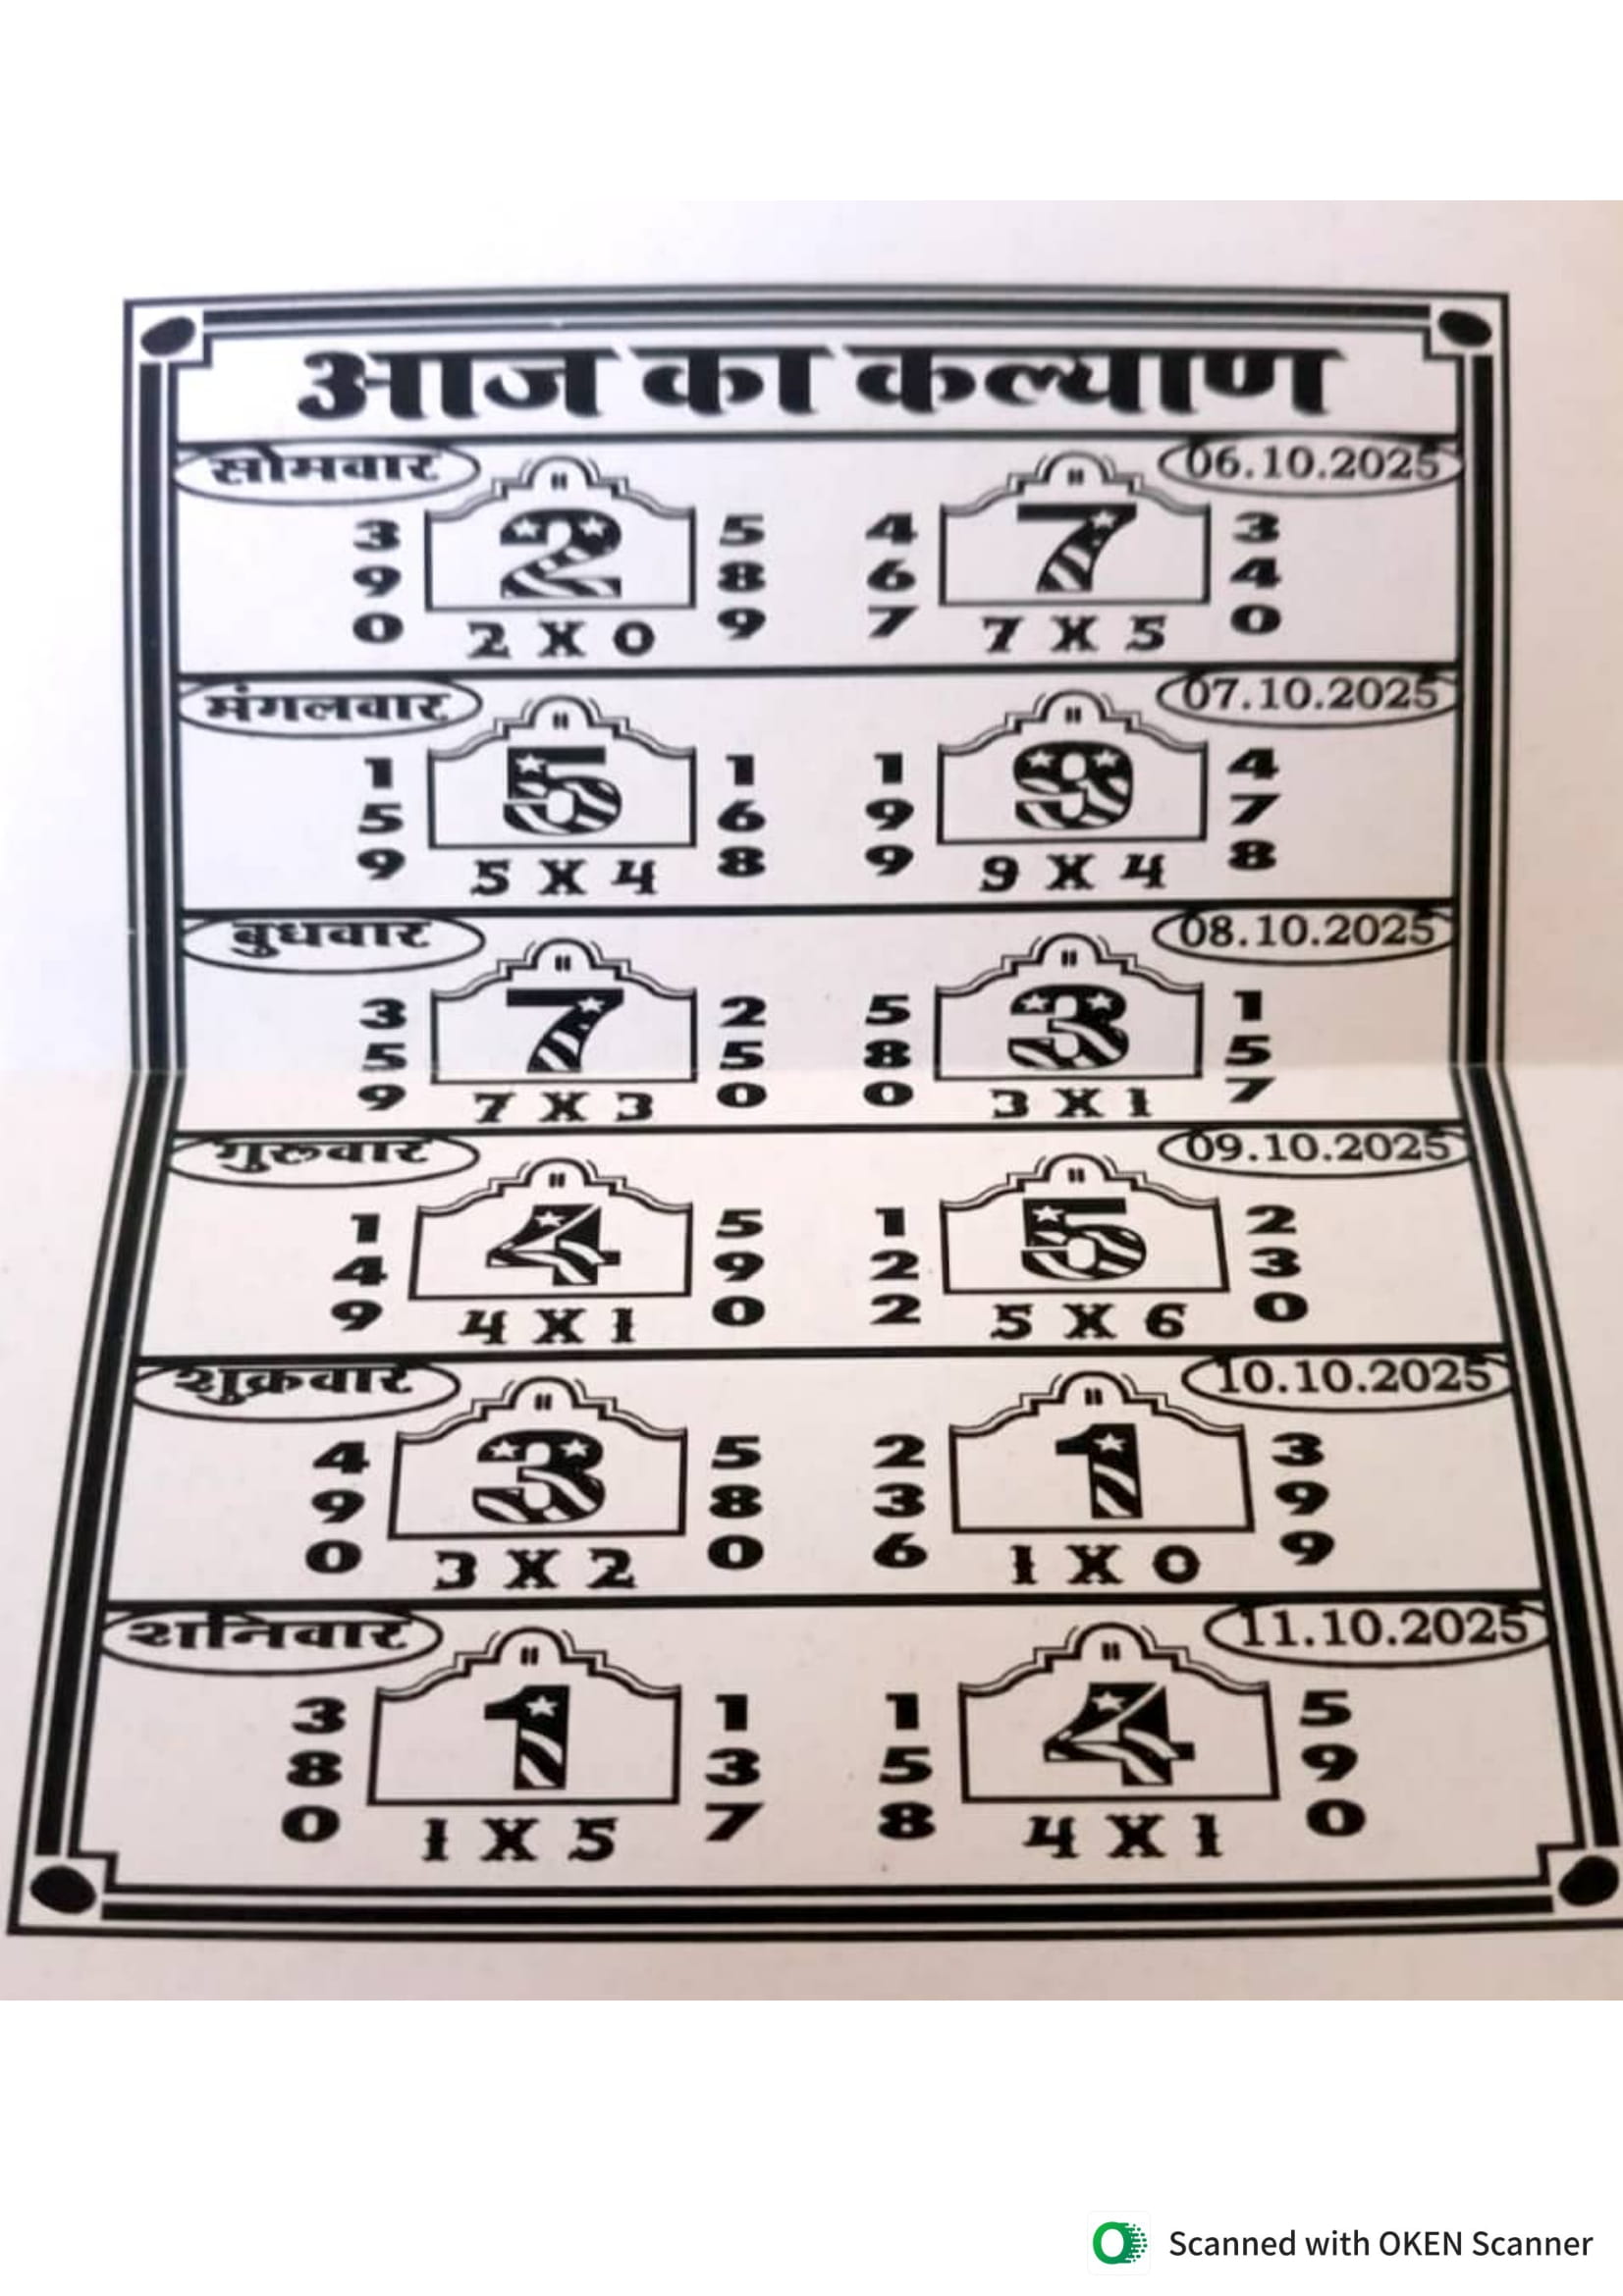 आज का कल्याण
सोमवार 06.10.2025
3 2 5 4 7 3
9 8 6 4
0 2 X 0 9 7 7 X 5 0
मंगलवार 07.10.2025
1 5 1 1 9 4
5 6 9 7
9 5 X 4 8 9 9 X 4 8
बुधवार 08.10.2025
3 7 2 5 3 1
5 5 8 5
9 7 X 3 0 0 3 X 1 7
गुरुवार 09.10.2025
1 4 5 1 5 2
4 9 2 3
9 4 X 1 0 2 5 X 6 0
शुक्रवार 10.10.2025
4 3 5 2 1 3
9 8 3 9
0 3 X 2 0 6 1 X 0 9
शनिवार 11.10.2025
3 1 1 1 4 5
8 3 5 9
0 1 X 5 7 8 4 X 1 0
Scanned with OKEN Scanner